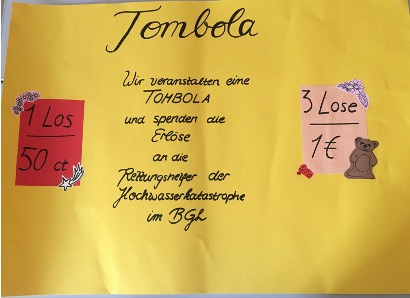 Tombola
Wir veranstalten eine
TOMBOLA
und spenden die
Erlöse
an die
Rettungshelfer der
Hochwasserkatastrophe
im BGL
1 Los
50 ct
3 Lose
1€